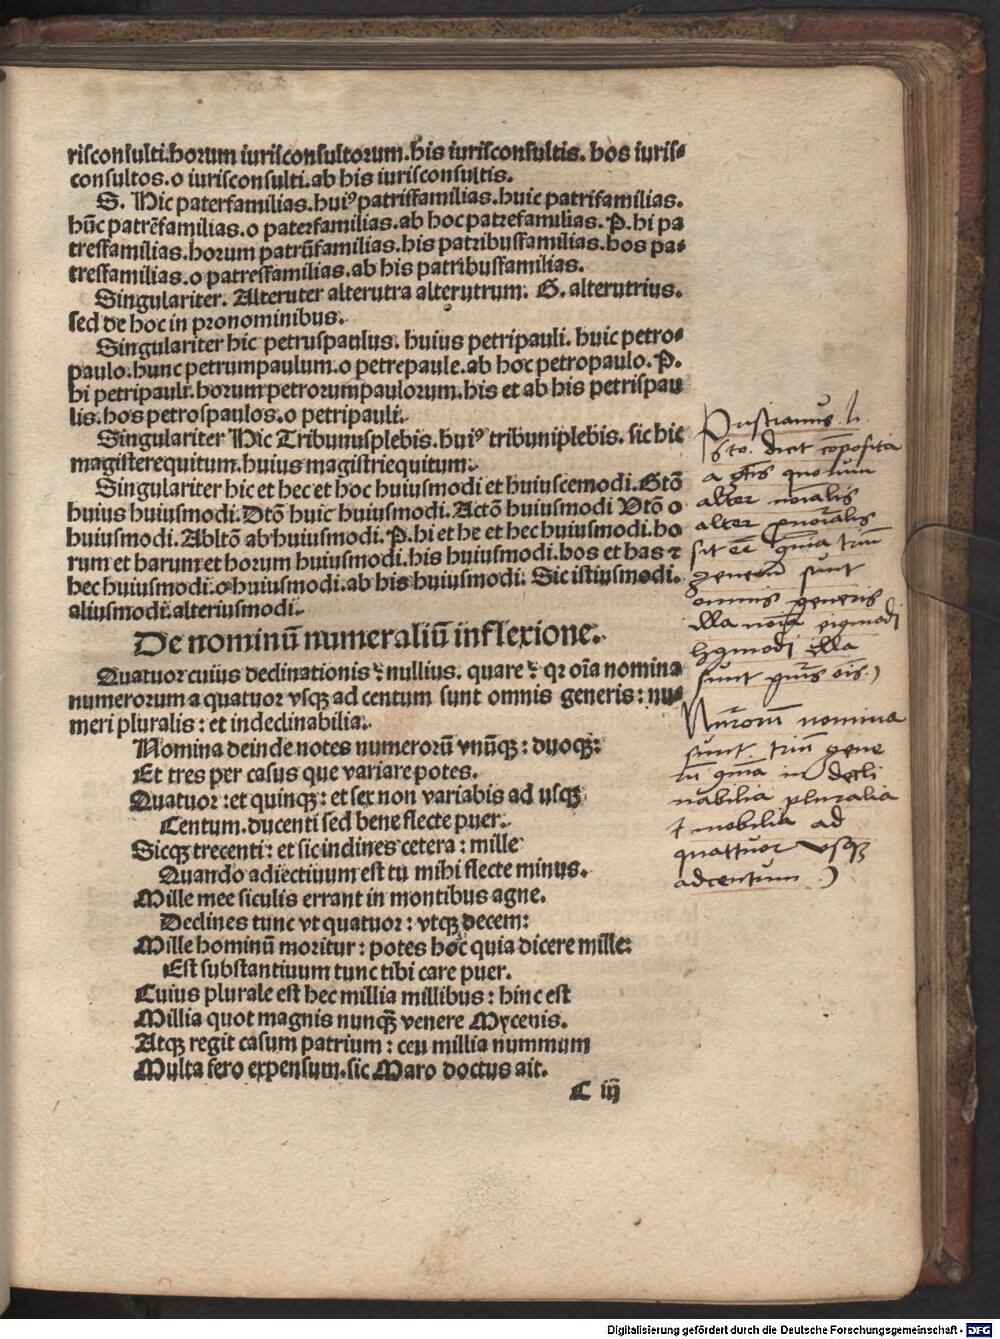 risconsulti.horum iurisconsultorum.his iurisconsultis. hos iuris⸗
consultos.o iurisconsulti.ab his iurisconsultis.
S. Hic paterfamilias.huiꝰ patrisfamilias.huic patrifamilias.
hūc patrēfamilias.o paterfamilias.ab hoc patrefamilias.P.hi pa
tresfamilias.horum patrūfamilias.his patribusfamilias.hos pa⸗
tresfamilias.o patresfamilias.ab his patribusfamilias.
Singulariter. Alteruter alterutra alterutrum. G. alterutrius.
sed de hoc in pronominibus.
Singulariter hic petruspaulus. huius petripauli. huic petro⸗
paulo.hunc petrumpaulum.o petrepaule.ab hoc petropaulo.P.
hi petripauli.horum petrorumpaulorum.his et ab his petrispau
lis.hos petrospaulos.o petripauli.
Singulariter Hic Tribunusplebis.huiꝰ tribuniplebis. sic hic
magisterequitum.huius magistriequitum.
Singulariter hic et hec et hoc huiusmodi et huiuscemodi.Gtō
huius huiusmodi.Dtō huic huiusmodi.Actō huiusmodi Vtō o
huiusmodi.Abltō ab huiusmodi.P.hi et he et hec huiusmodi.ho
rum et harum et horum huiusmodi.his huiusmodi.hos et has ⁊
hec huiusmodi.o huiusmodi.ab his huiusmodi. Sic istiusmodi.
aliusmodi.alteriusmodi.
De nominū numeraliū inflexione.
Quatuor cuius declinationis ē nullius. quare ē qr oīa nomina
numerorum a quatuor vsqꝫ ad centum sunt omnis generis: nu⸗
meri pluralis: et indeclinabilia.
Nomina deinde notes numerorū vnūqꝫ: duoqꝫ:
Et tres per casus que variare potes.
Quatuor:et quinqꝫ: et sex non variabis ad usqꝫ
Centum.ducenti sed bene flecte puer.
Sicqꝫ trecenti: et sic indines cetera: mille
Quando adiectiuum est tu mihi flecte minus.
Mille mee siculis errant in montibus agne.
Declines tunc vt quatuor: vtqꝫ decem:
Mille hominū moritur: potes hoc quia dicere mille:
Est substantiuum tunc tibi care puer.
Cuius plurale est hec millia millibus: hinc est
Millia quot magnis nunqꝫ̄ venere Mycenis.
Atqꝫ regit casum patrium: ceu millia nummum
Multa fero expensum.sic Maro doctus ait.
C iij
Pristianus li.
sto. dicit cōposita
a quorum
alter noīalis
alter
sit
generū sunt
omnis generis
illa noīa eiꝰmodi
illa
sunt ois.)
Nūrorum nomina
sunt. triū gene
in decli
nabilia pluralia
mobilia ad
quattuor vsqꝫ
adcentum )
Digitalisierung gefördert durch die Deutsche Forschungsgemeinschaft - DFG